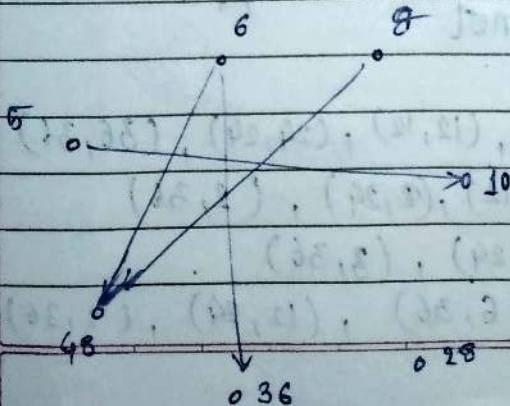 6 8
5
10
48
28
36